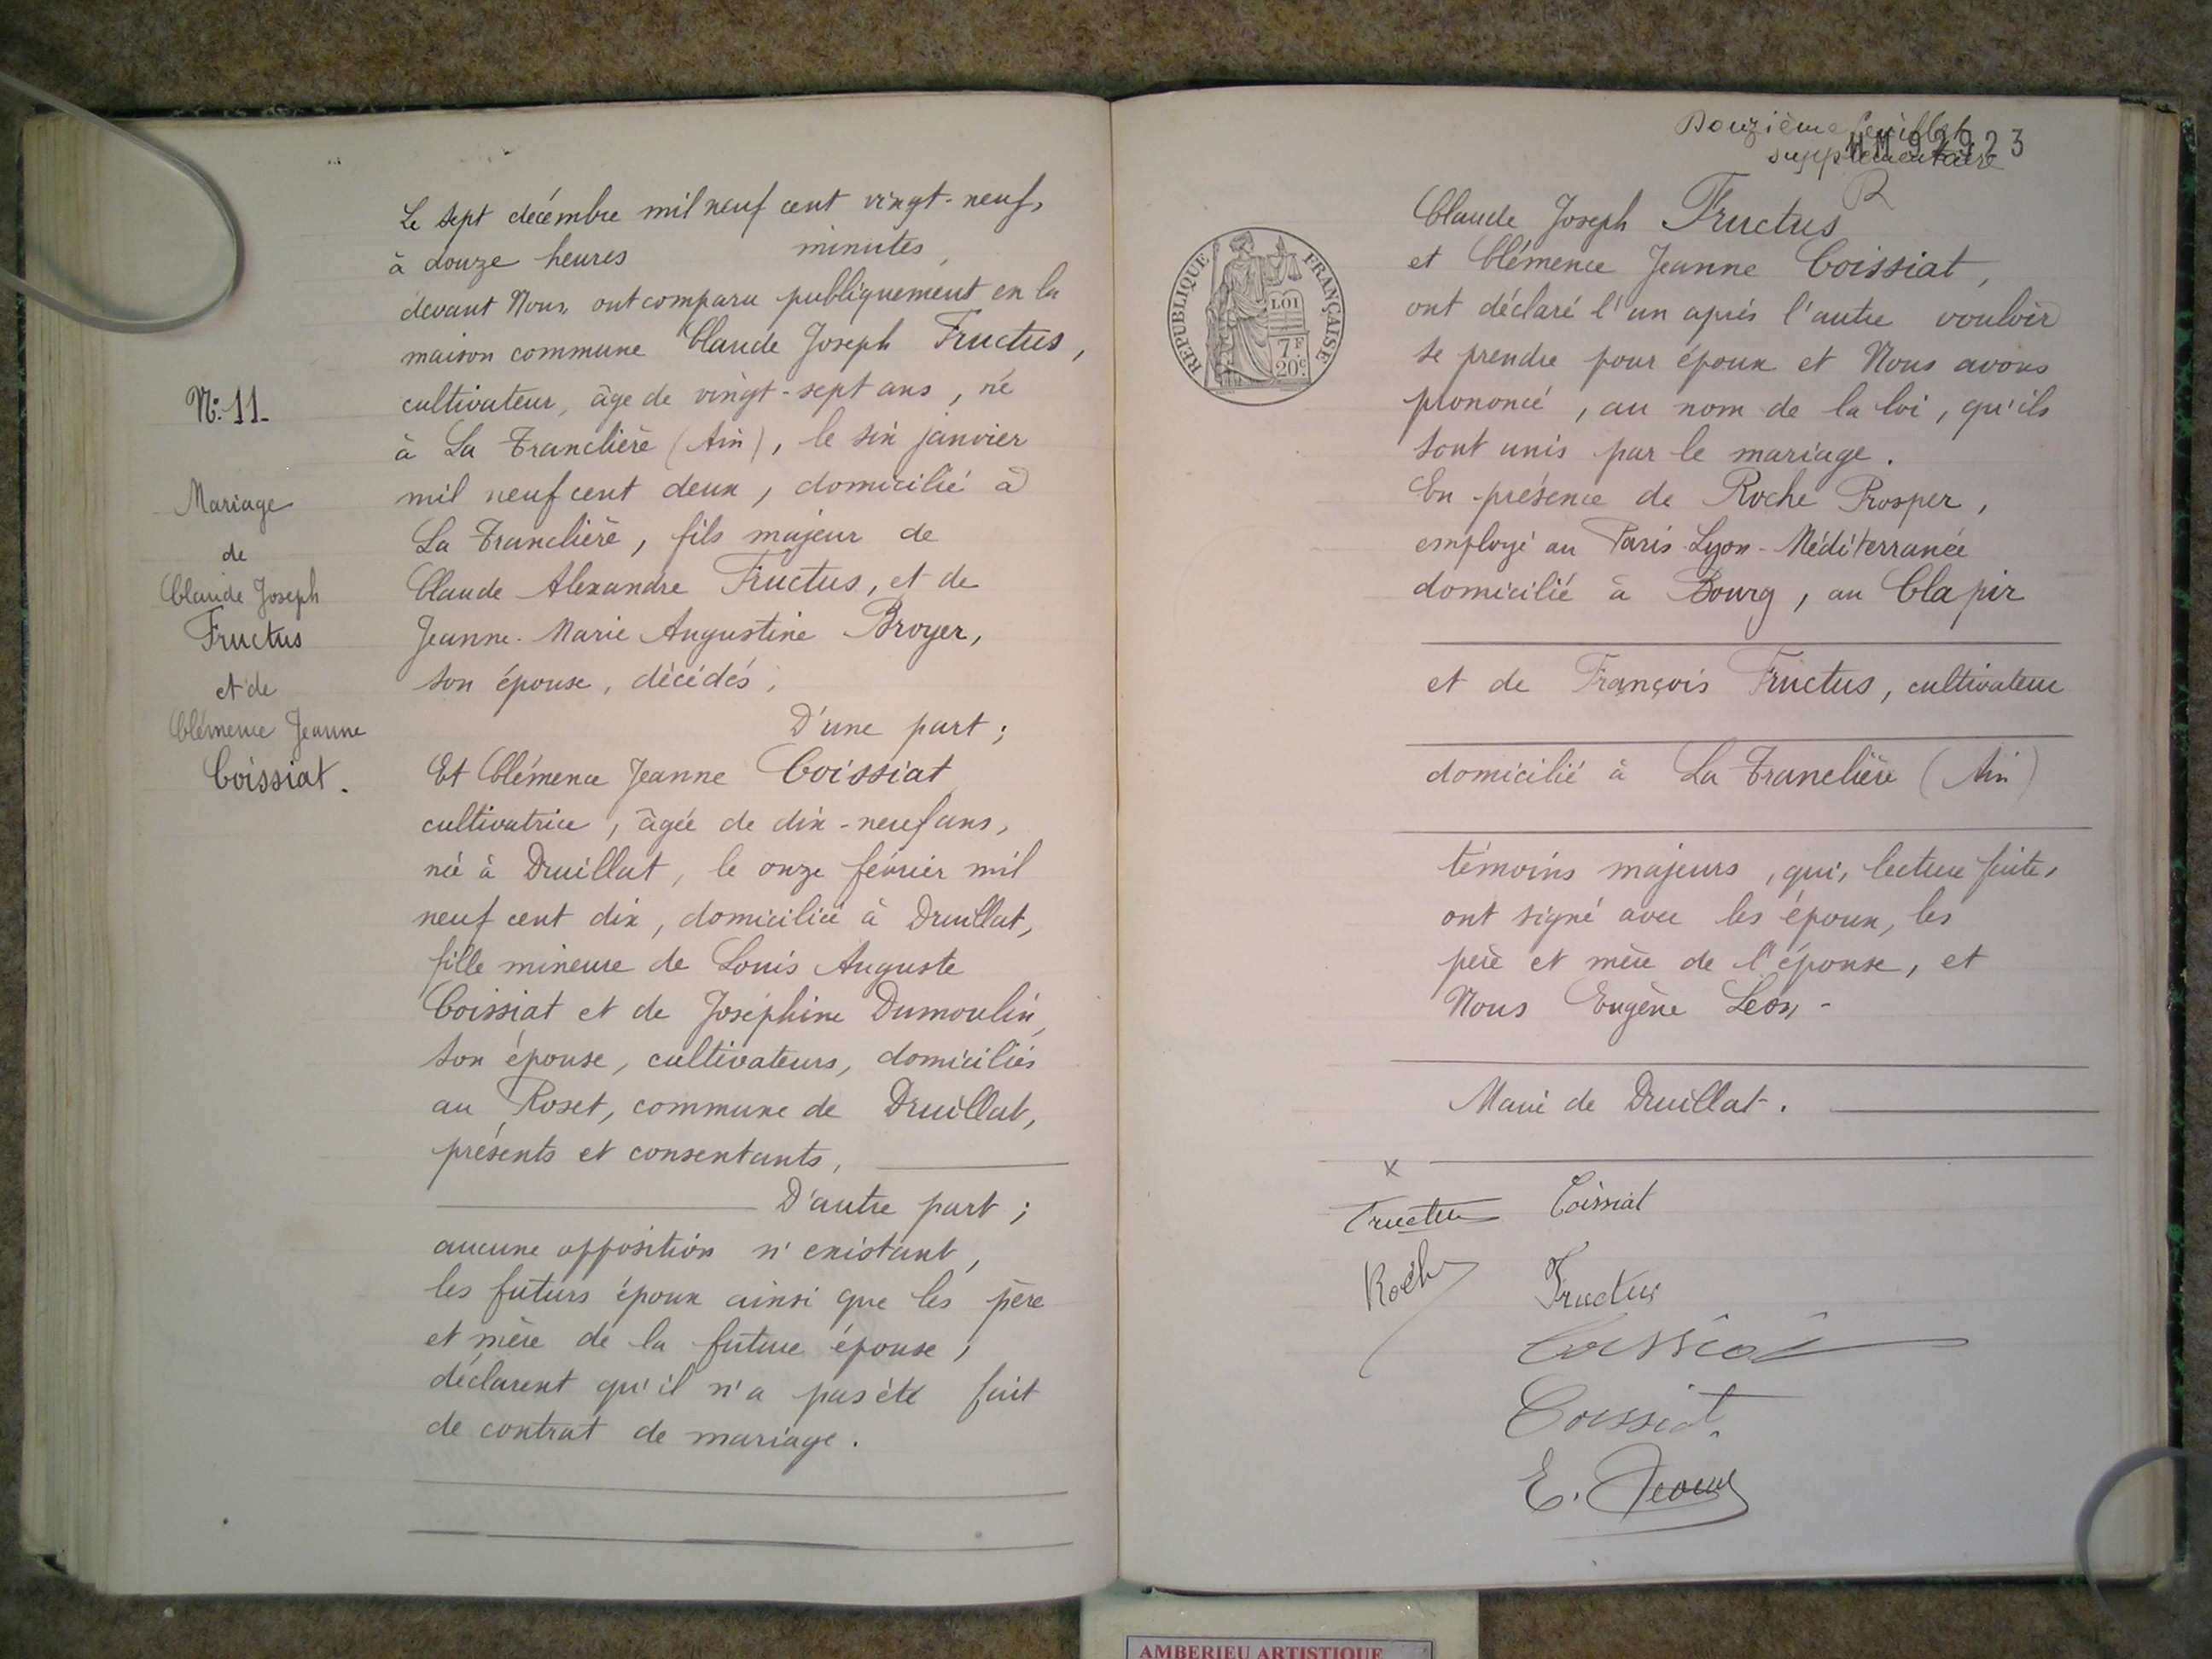 N: 11.
Mariage
de
Claude Joseph
Fructus
et de
Clémence Jeanne
Coissiat.
Le sept décembre mil neuf cent vingt-neuf,
à douze heures minutes,
devant Nous, ont comparu publiquement en la
maison commune Claude Joseph Fructus,
cultivateur, âgé de vingt-sept ans, né
à La Tranclière (Ain), le six janvier
mil neuf cent deux, domicilié à
La Tranclière, fils majeur de
Claude Alexandre Fructus, et de
Jeanne-Marie Augustine Broyer,
son épouse, décédés,
D'une part;
Et Clémence Jeanne Coissiat
cultivatrice, âgée de dix-neuf ans,
née à Druillat, le onze février mil
neuf cent dix, domiciliée à Druillat,
fille mineure de Louis Auguste
Coissiat et de Joséphine Dumoulin,
son épouse, cultivateurs, domiciliés
au Roset, commune de Druillat,
présents et consentants,
D'autre part;
aucune opposition n'existant,
les futurs époux ainsi que les père
et mère de la future épouse,
déclarent qu'il n'a pas été fait
de contrat de mariage.
Douzième feuillet
supplémentaire
MM 92923
REPUBLIQUE FRANÇAISE
LOI
7F
20c.
Claude Joseph Fructus
et Clémence Jeanne Coissiat,
ont déclaré l'un après l'autre vouloir
se prendre pour époux et Nous avons
prononcé, au nom de la loi, qu'ils
sont unis par le mariage.
En présence de Roche Prosper,
employé au Paris-Lyon-Méditerranée
domicilié à Bourg, au Clapir
et de François Fructus, cultivateur
domicilié à La Tranclière (Ain)
témoins majeurs, qui, lecture faite,
ont signé avec les époux, les
père et mère de l'épouse, et
Nous Eugène Léon,-
Maire de Druillat.
x
Fructus Coissiat
Roche Fructus
Coissiat
Coissiat.
E. Léon
AMBERIEU ARTISTIQUE